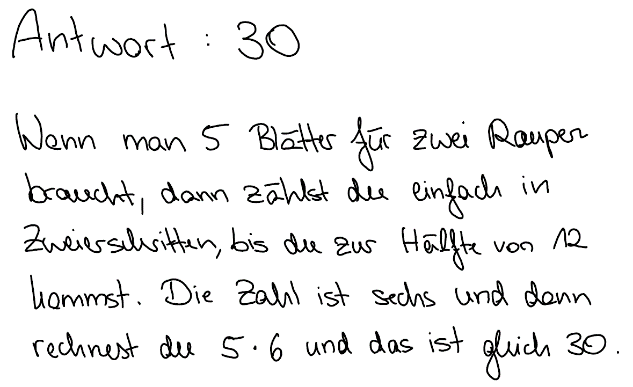 Antwort : 30
Wenn man 5 Blätter für zwei Raupen
braucht, dann zählst du einfach in
Zweierschritten, bis du zur Hälfte von 12
kommst. Die Zahl ist sechs und dann
rechnest du 5 · 6 und das ist gleich 30.